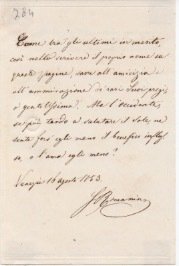 784
Come tra gli ultimi in merito,
così nello scrivere il proprio nome su
queste pagine, sacra all'amicizia
ed all'ammirazione di rari pregi,
o gentilissima. Ma l'occidente,
se più tardo a saluta il Sole, ne
sente forse egli meno i benefici influssi
e l'ama egli meno?
Venezia 16 agosto 1853.